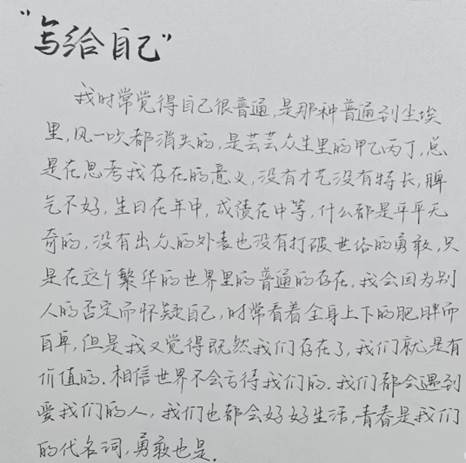 “写给自己”
我时常觉得自己很普通，是那种普通到尘埃
里，风一吹都消失的，是芸芸众生里的甲乙丙丁，总
是在思考我存在的意义，没有才艺没有特长，脾
气不好，生日在年中，成绩在中等，什么都是平平无
奇的，没有出众的外表也没有打破世俗的勇敢，只
是在这个繁华的世界里的普通的存在，我会因为别
人的否定而怀疑自己，时常看着全身上下的肥胖而
自卑，但是我又觉得既然我们存在了，我们就是有
价值的．相信世界不会亏待我们的．我们都会遇到
爱我们的人，我们也都会好好生活，青春是我们
的代名词，勇敢也是．